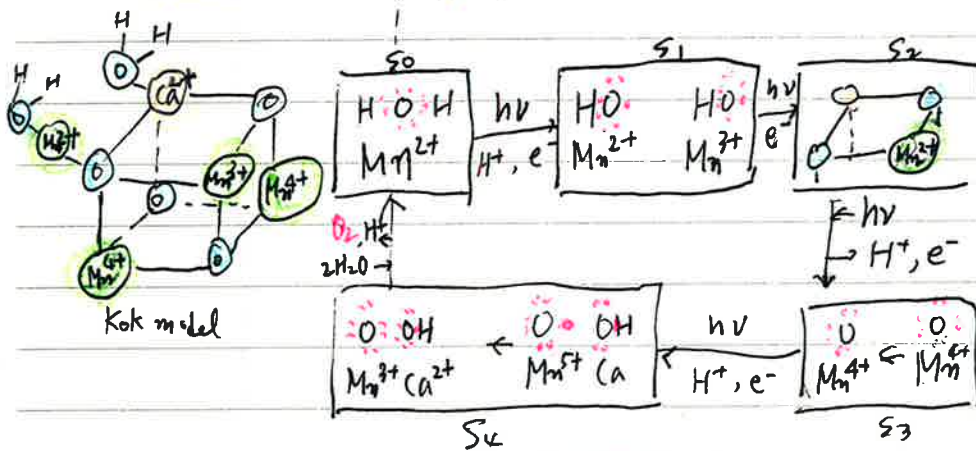 H H
H H
O
O
Ca²⁺
O
Mn³⁺
O
Mn⁴⁺
O
O
Mn⁴⁺
Kok model
S0
H O H
Mn²⁺
hν
H⁺, e⁻
S1
HO HO
Mn²⁺ Mn³⁺
hν
e⁻
S2
Mn²⁺
hν
H⁺, e⁻
O O
Mn⁴⁺ ← Mn⁴⁺
S3
hν
H⁺, e⁻
O OH ← O • OH
Mn³⁺ Ca²⁺ Mn⁵⁺ Ca
S4
O₂, H⁺
2H₂O